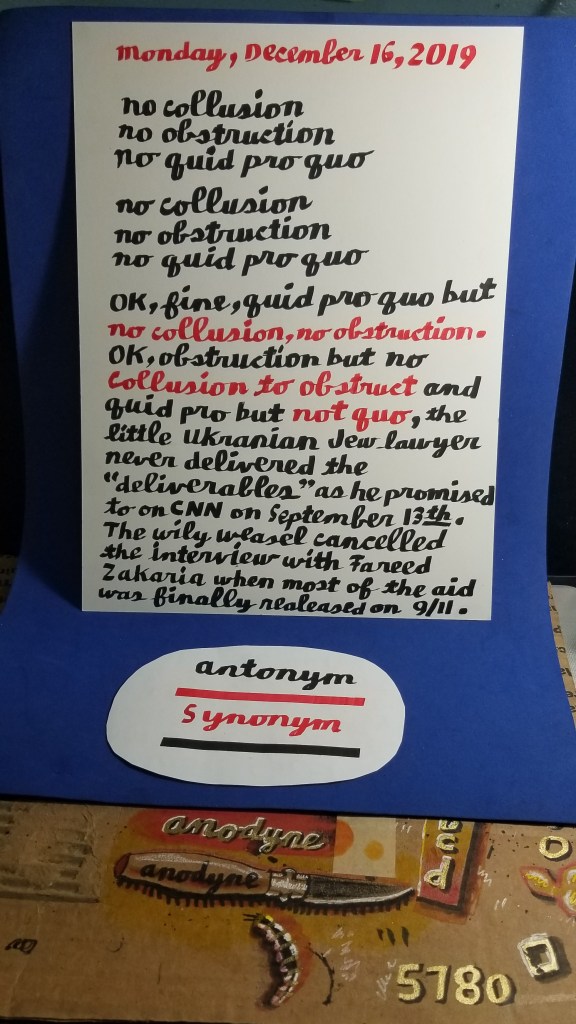 monday, December 16, 2019
no collusion
no obstruction
no quid pro quo
no collusion
no obstruction
no quid pro quo
OK, fine, quid pro quo but
no collusion, no obstruction.
OK, obstruction but no
collusion to obstruct and
quid pro but not quo, the
little Ukranian Jew lawyer
never delivered the
"deliverables" as he promised
to on CNN on September 13th.
The wily weasel cancelled
the interview with Fareed
Zakaria when most of the aid
was finally realeased on 9/11.
antonym
synonym
anodyne
anodyne
5780